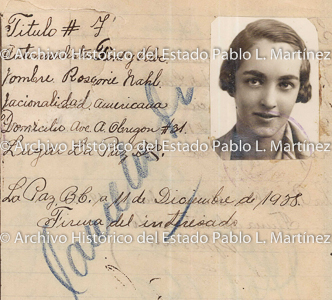 Titulo # 7
Nombre Roscorie Nahl.
Nacionalidad, americana
Domicilio Ave A. Obregon #31.
Lugar La Paz
La Paz B.C., a 11 de Diciembre de 1928.
Firma del interesado
Cancelado
© Archivo Histórico del Estado Pablo L. Martínez
© Archivo Histórico del Estado Pablo L. Martínez
© Archivo Histórico del Estado Pablo L. Martínez